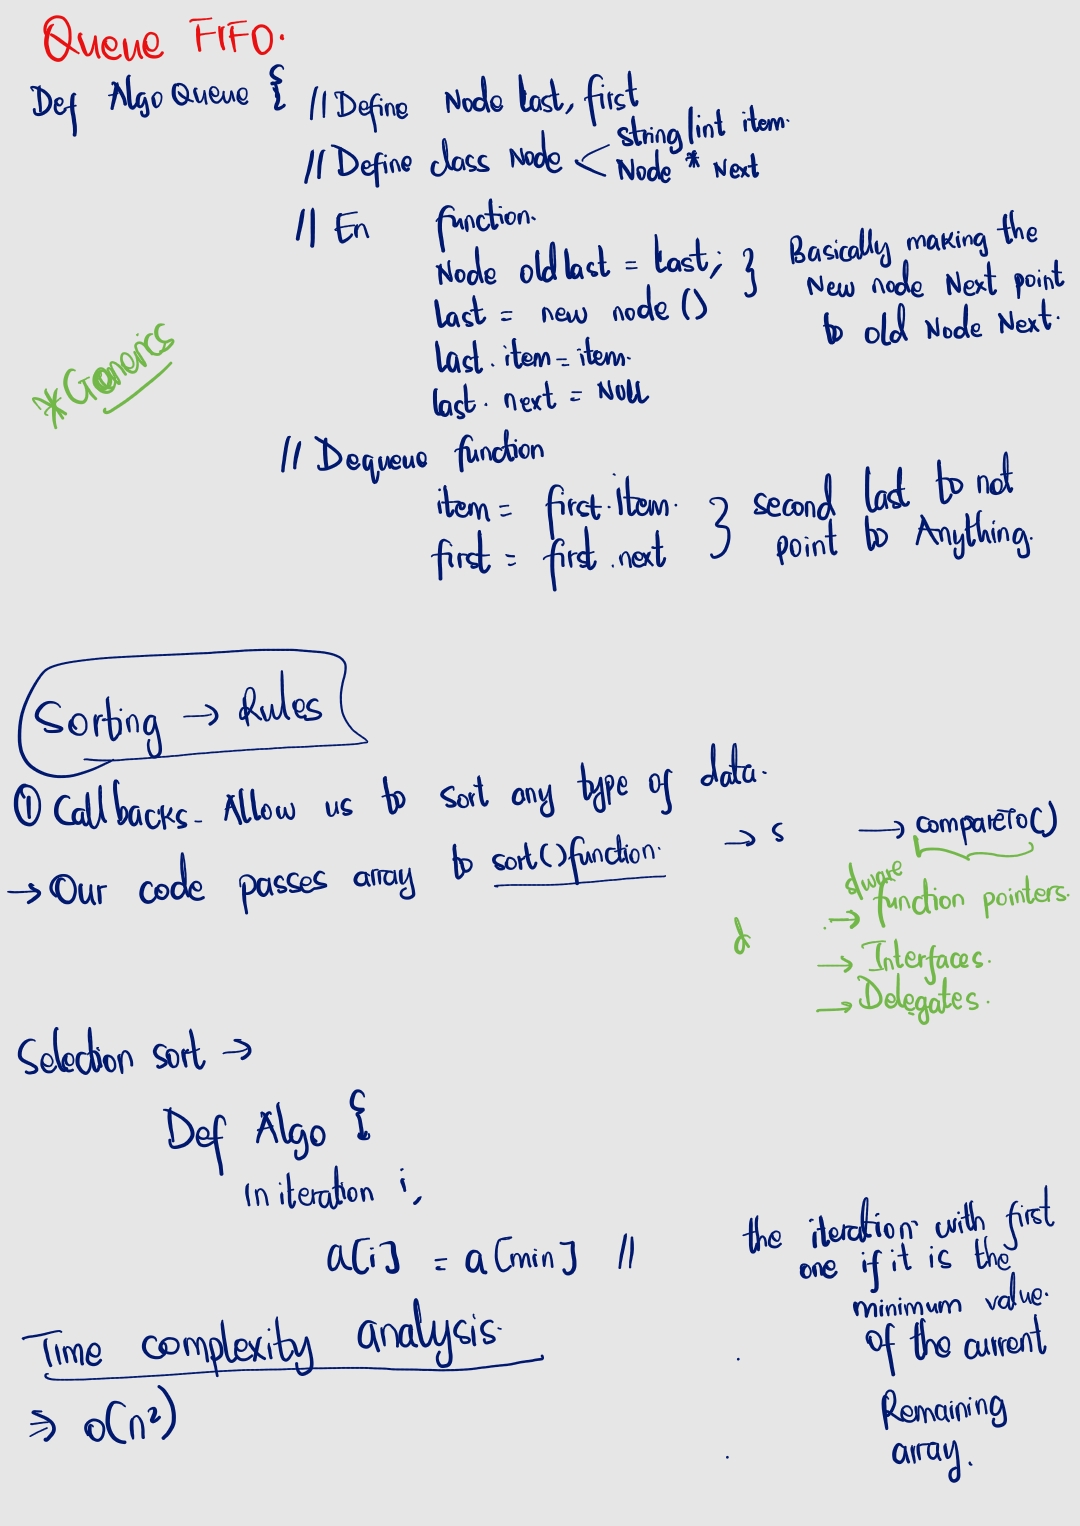 Queue FIFO.
Def Algo Queue { // Define Node last, first
// Define class Node < string/int item.
Node * Next
// En function.
Node oldlast = last; } Basically making the
last = new node () New node Next point
to old Node Next.
last . item = item.
last . next = NULL
*Generics
// Dequeue function
item = first.item. } second last to not
first = first.next point to Anything.
Sorting → Rules
① Callbacks - Allow us to sort any type of data.
→ Our code passes array to sort() function. → s → compareTo()
→ function pointers.
d → Interfaces.
→ Delegates.
Selection sort →
Def Algo {
In iteration i,
a[i] = a[min] // the iteration with first
one if it is the
minimum value.
of the current
Remaining
array.
Time complexity analysis.
⇒ o(n²)